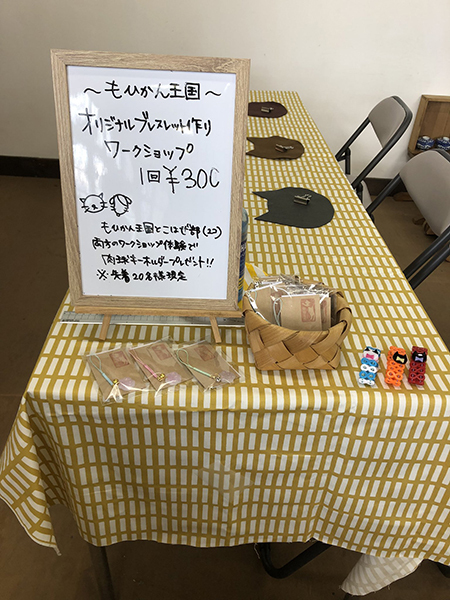 ～もひかん王国～
オリジナルブレスレット作り
ワークショップ
1回￥300
もひかん王国とこはぜ群(22)
両方のワークショップ体験で
肉球キーホルダープレゼント!!
※先着20名様限定